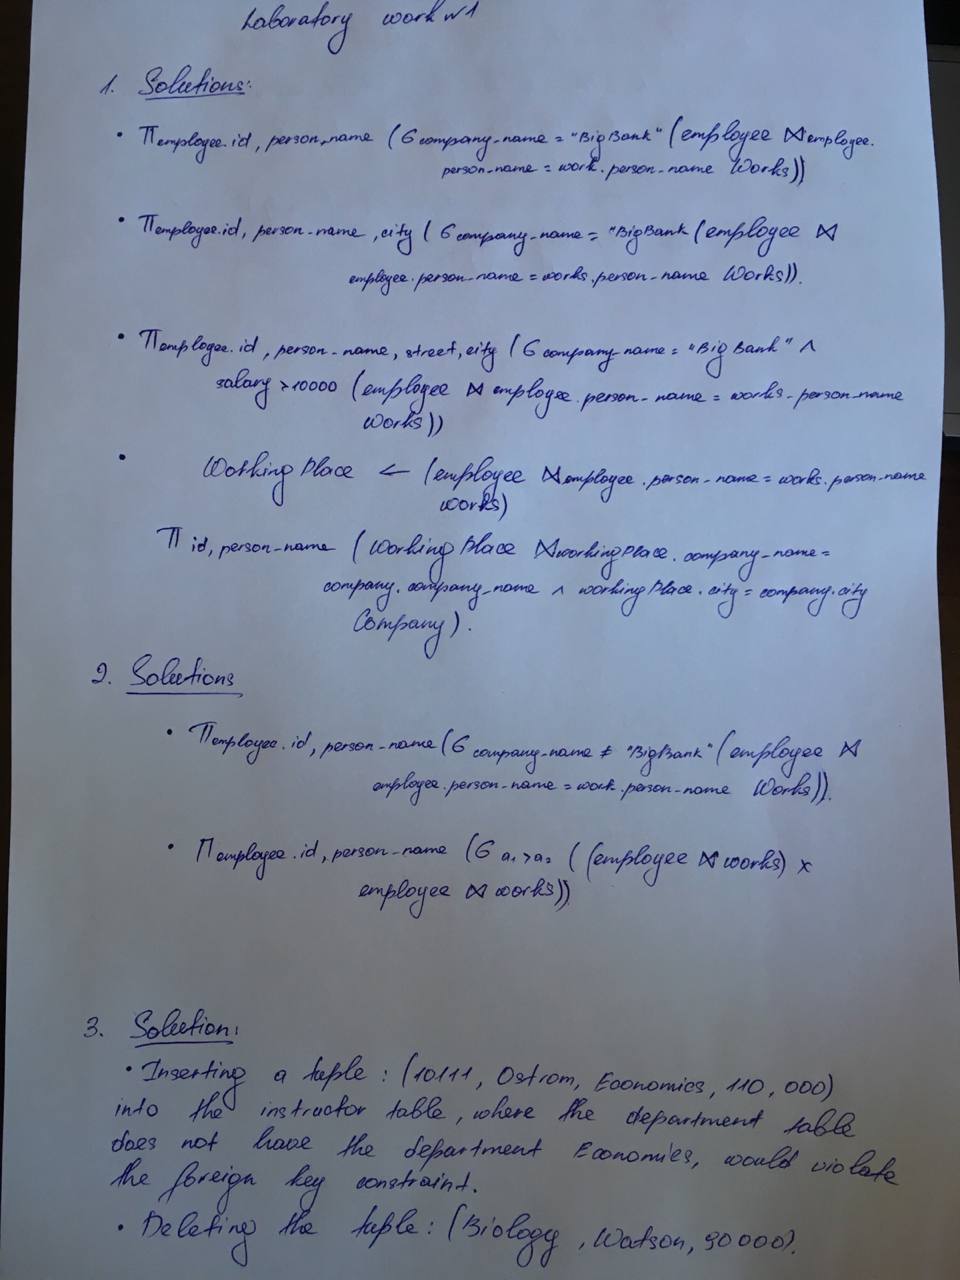 Laboratory work №1
1. Solutions:
• Πemployee.id, person_name (σcompany_name = "BigBank" (employee ⋈employee.
person_name = work.person_name Works))
• Πemployee.id, person_name, city (σcompany_name = "BigBank (employee ⋈
employee.person_name = works.person_name Works)).
• Πemployee.id, person_name, street, city (σcompany_name = "BigBank" ∧
salary > 10000 (employee ⋈ employee.person_name = works-person_name
Works))
• WorkingPlace ← (employee ⋈employee.person_name = works.person_name
works)
Π id, person_name (WorkingPlace ⋈workingPlace.company_name =
company.company_name ∧ workingPlace.city = company.city
Company).
2. Solutions
• Πemployee.id, person_name (σcompany_name ≠ "BigBank" (employee ⋈
employee.person_name = work.person_name Works)).
• Πemployee.id, person_name (σ a₁ > a₂ ((employee ⋈ works) ×
employee ⋈ works))
3. Solution:
• Inserting a tuple: (10111, Ostrom, Economics, 110,000)
into the instructor table, where the department table
does not have the department Economics, would violate
the foreign key constraint.
• Deleting the tuple: (Biology, Watson, 90000).